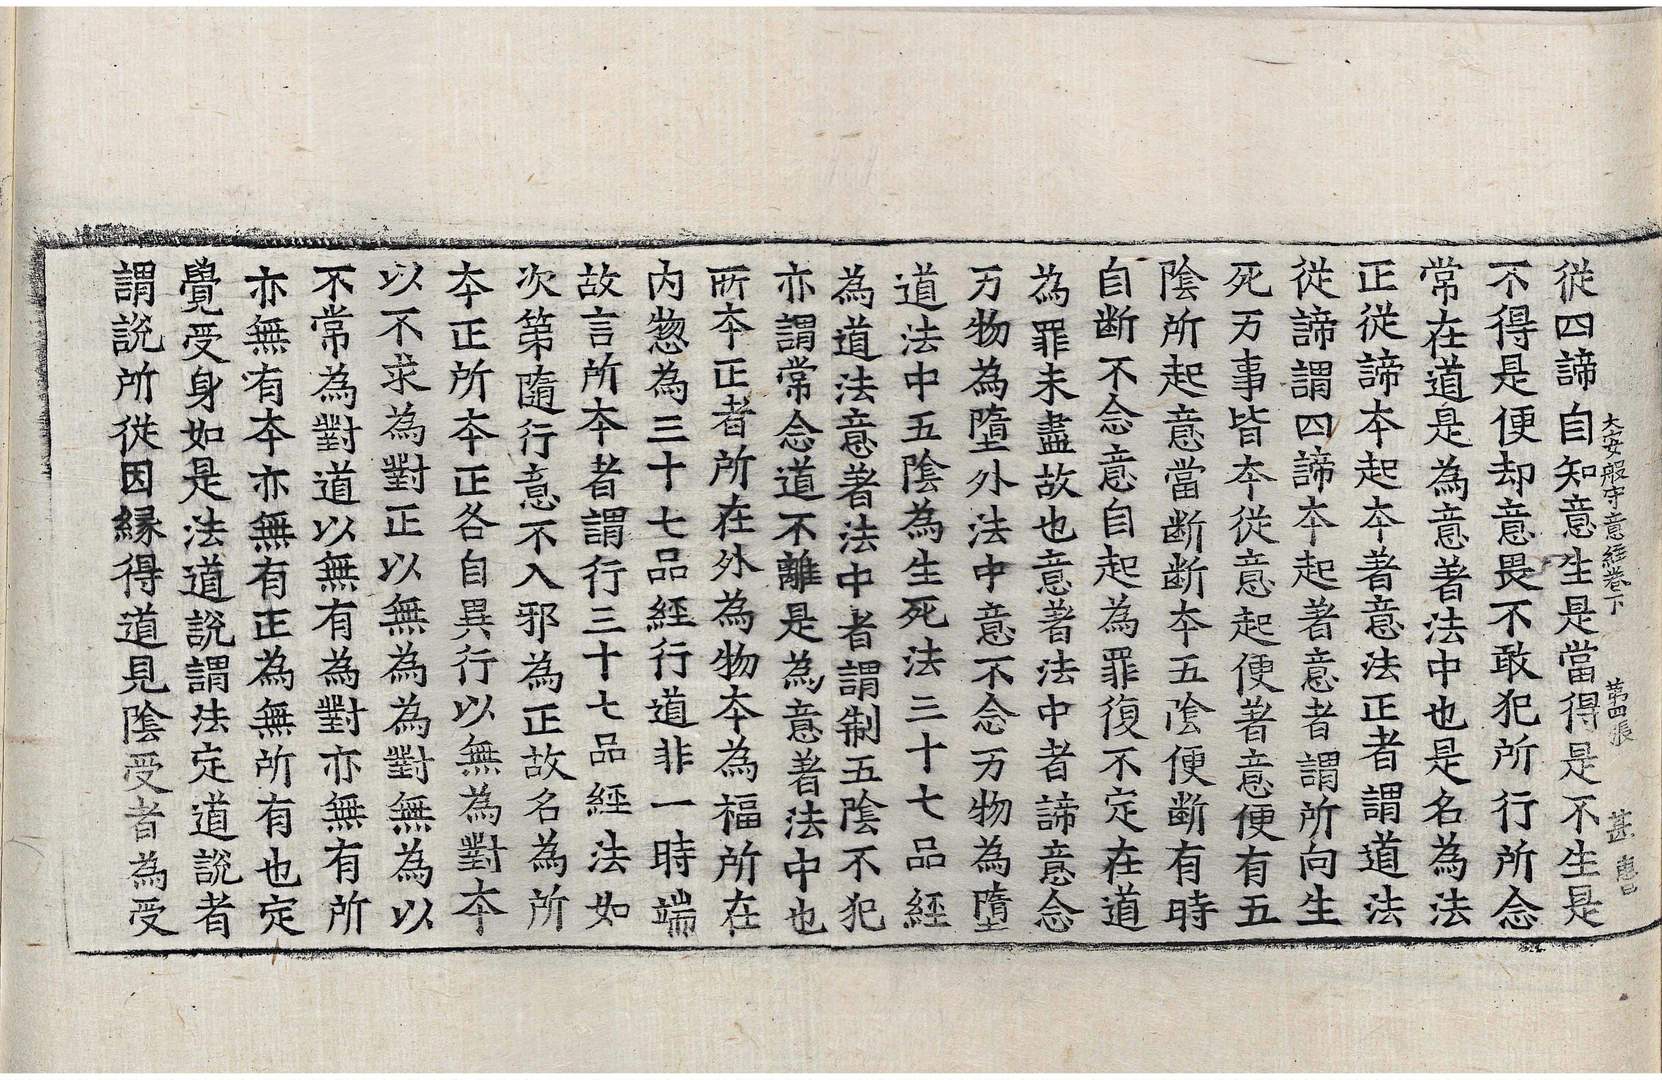 大安般守意經卷下 第四張 甚
從四諦自知意生是當得是不生是
不得是便却意畏不敢犯所行所念
常在道是為意著法中也是名為法
正從諦夲起夲著意法正者謂道法
從諦謂四諦夲起著意者謂所向生
死万事皆夲從意起便著意便有五
陰所起意當斷斷夲五陰便斷有時
自斷不念意自起為罪復不定在道
為罪未盡故也意著法中者諦意念
万物為墮外法中意不念万物為墮
道法中五陰為生死法三十七品經
為道法意著法中者謂制五陰不犯
亦謂常念道不離是為意著法中也
所夲正者所在外為物夲為福所在
内惣為三十七品經行道非一時端
故言所夲者謂行三十七品經法如
次第隨行意不入邪為正故名為所
夲正所夲正各自異行以無為對夲
以不求為對正以無為為對無為以
不常為對道以無有為對亦無有所
亦無有夲亦無有正為無所有也定
覺受身如是法道說謂法定道說者
謂說所從因縁得道見陰受者為受